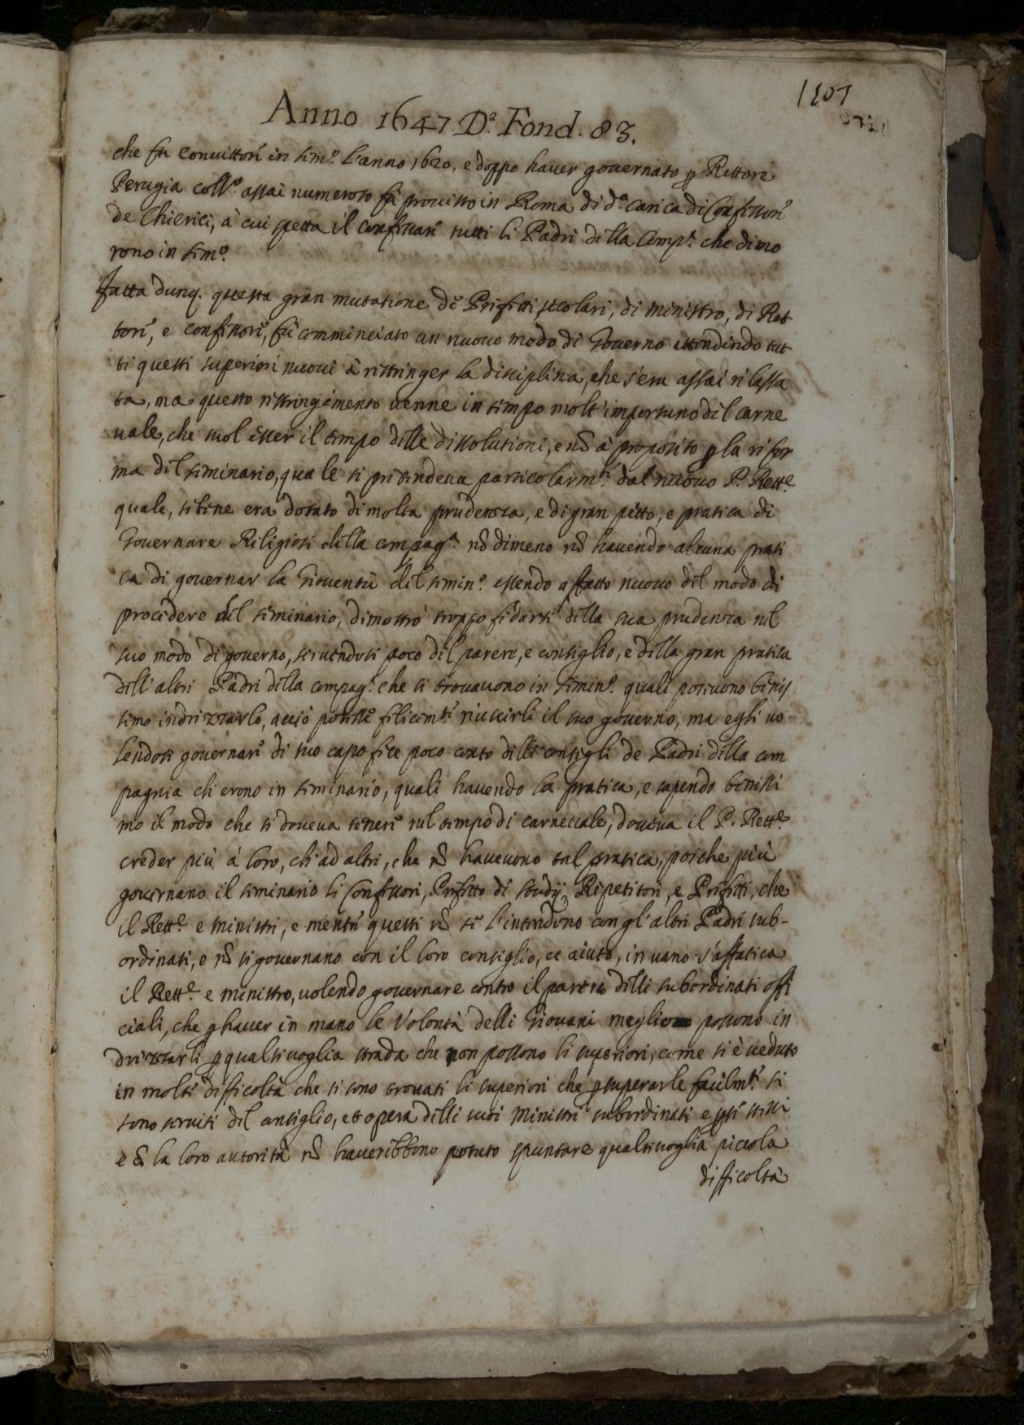 1107
Anno 1647 Dª Fond. 83.
che fu Convittore in Sem.º l'anno 1620, e doppo haver governato p Rettore
Perugia Coll.º assai numeroso fu provisto in Roma di dª carica di Confessore
de Chierici, à cui spetta il confessare tutti li Padri della Comp.ª che dimo
rono in Sem.º
Fatta dunq. questa gran mutatione de Prefetti secolari, di ministro, di Ret
tore, e confessore, fu comminciato un nuovo modo di Governo attendendo tut
ti questi superiori nuovi à ristringer la disciplina, che s'era assai rilassa
ta, ma questo ristringimento venne in tempo molt'importuno del carne
vale, che suol esser il tempo delle dissolutioni, e nō à proposito p la rifor
ma del seminario, quale si pretendeva particolarm.te dal nuovo P. Rett.e
quale, sebene era dotato di molta prudenza, e di gran petto, e pratica di
Governare Religiosi della compag.ª nōdimeno nō havendo alcuna prati
ca di governar la Gioventù del semin.º essendo affatto nuovo del modo di
procedere del seminario, dimostrò troppo fidarsi della sua prudenza nel
suo modo di governo, servendosi poco del parere, e consiglio, e della gran pratica
dell'altri Padri della compag.ª che si trovavono in Semin.º quali potevono benis
simo indrizzarlo, acciò potesse felicem.te riuscirli il suo governo, ma egli vo
lendosi governare di suo capo fece poco conto delli consigli de Padri della com
pagnia ch'erono in seminario, quali havendo la pratica, e sapendo benissi
mo il modo che si doveva tenere nel tempo di carnevale, doveva il P. Rett.e
creder più à loro, ch'ad altri, che nō havevono tal pratica, poiche più
governano il seminario li Confessori, Prefetto di studij, Ripetitori, e Prefetti, che
il Rett.e e ministri, e mentre questi nō se l'intendono con gl'altri Padri sub-
ordinati, e nō si governano con il loro consiglio, et aiuto, in vano s'affatica
il Rett.e e ministro, volendo governare contro il parere delli subordinati offi
ciali, che p haver in mano le Volontà delli Giovani meglio possono in
drizzarli p qualsivoglia strada che non possono li superiori, come si è veduto
in molte difficoltà che si sono trovati li superiori che p superarle facilm.te si
sono serviti del consiglio, et opera delli suoi ministri subordinati e stessi
la loro autorità nō haverebbono potuto spuntare qualsivoglia picciola
difficoltà